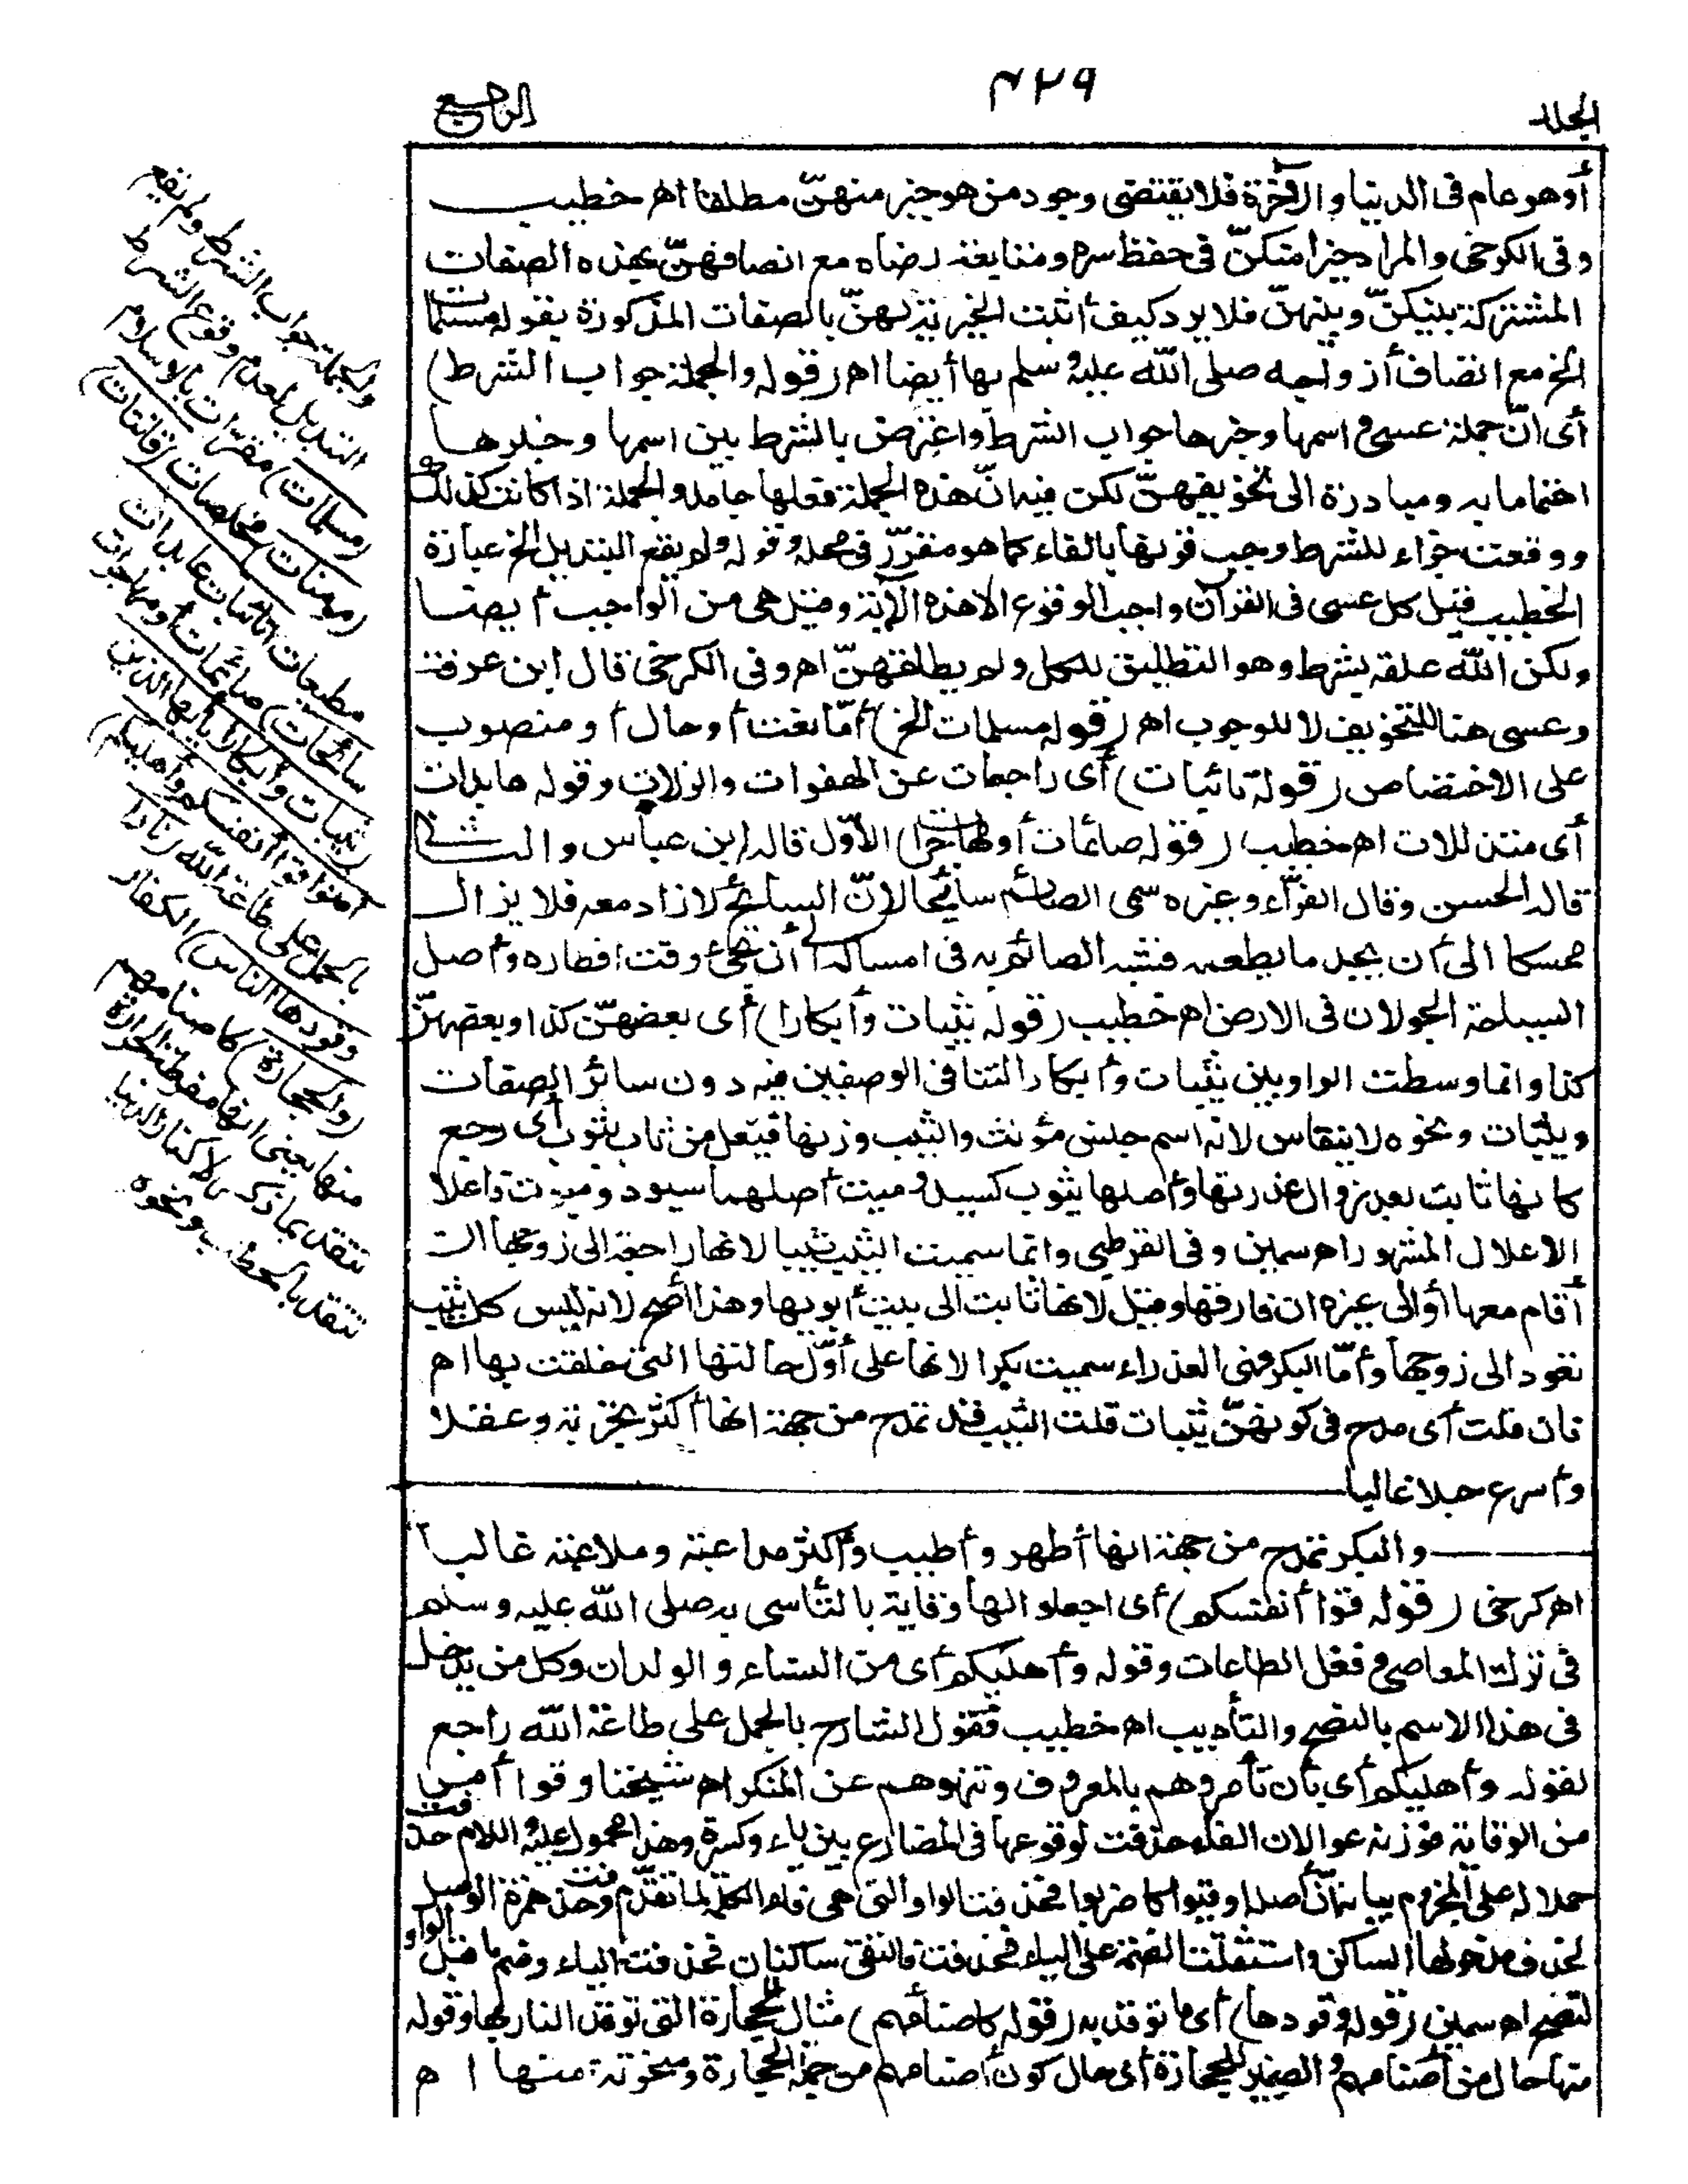 الجلد
٤٢٩
الرابع
أو هو عام في الدنيا والآخرة فلا يقتضي وجود من هو خير منهنّ مطلقا اه خطيب
وفي الكرخي والمراد خيرا منكنّ في حفظ سره ومتابعة رضاه مع اتصافهنّ بهذه الصفات
المشتركة بينكنّ وبينهنّ فلا يرد كيف أثبت الخيرية لهنّ بالصفات المذكورة بقوله مسلمات
الخ مع اتصاف أزواجه صلى الله عليه وسلم بها أيضا اه (قوله والجملة جواب الشرط)
أي انّ جملة عسى واسمها وخبرها جواب الشرط واعترض بالشرط بين اسمها وخبرها
اهتماما به ومبادرة الى تخويفهنّ لكن فيه انّ هذه الجملة فعلها جامد والجملة اذا كانت كذلك
ووقعت جزاء للشرط وجب قرنها بالفاء كما هو مقرّر في محله وقوله ولم يقع التبديل الخ عبارة
الخطيب قيل كل عسى في القرآن واجب الوقوع الا هذه الآية وقيل هي من الواجب أيضا
ولكن الله علقه بشرط وهو التطليق للكل ولم يطلقهنّ اه وفي الكرخي قال ابن عرفة
وعسى هنا للتخويف لا للوجوب اه (قوله مسلمات الخ) أمّا نعت أو حال أو منصوب
على الاختصاص (قوله تائبات) أي راجعات عن الهفوات والزلات وقوله عابدات
أي متذللات اه خطيب (قوله صائمات أو مهاجرات) الأوّل قاله ابن عباس والثاني
قاله الحسن وقال الفرّاء وغيره سمى الصائم سائحا لانّ السائح لا زاد معه فلا يزال
ممسكا الى أن يجد ما يطعمه فشبه الصائم به في امساكه الى أن يجيء وقت افطاره وأصل
السياحة الجولان في الارض اه خطيب (قوله ثيبات وأبكارا) أي بعضهنّ كذا وبعضهنّ
كذا وانما وسطت الواو بين ثيبات وأبكارا لتنافي الوصفين فيه دون سائر الصفات
وثيبات ونحوه لا ينقاس لانه اسم جنس مؤنث والثيب وزنها فيعل من ثاب يثوب أي رجع
كانها ثابت بعد زوال عذرتها وأصلها ثيوب كسيد وميت أصلهما سيود وميوت فاعلا
الاعلال المشهور اه سمين وفي القرطبي وانما سميت الثيب ثيبا لانها راجعة الى زوجها ان
أقام معها أو الى غيره ان فارقها وقيل لانها ثابت الى بيت أبويها وهذا أصح لانه ليس كل ثيب
تعود الى زوجها وأمّا البكر فهي العذراء سميت بكرا لانها على أوّل حالتها التي خلقت بها اه
فان قلت أي مدح في كونهنّ ثيبات قلت الثيب قد تمدح من جهة انها أكثر تجربة وعقلا
وأسرع حبلا غالبا
والبكر تمدح من جهة انها أطهر وأطيب وأكثر مداعبة وملاعبة غالبا
اه كرخي (قوله قوا أنفسكم) أي اجعلوا لها وقاية بالتأسي به صلى الله عليه وسلم
في ترك المعاصي وفعل الطاعات وقوله وأهليكم أي من النساء والولدان وكل من يدخل
في هذا الاسم بالنصح والتأديب اه خطيب فقول الشارح بالحمل على طاعة الله راجع
لقوله وأهليكم أي بأن تأمروهم بالمعروف وتنهوهم عن المنكر اه شيخنا وقوا أمر
من الوقاية فوزنه عوا لان الفاء حذفت لوقوعها في المضارع بين ياء وكسرة وهذا محمول عليه واللام حذفت
حملا له على المجزوم بيانه أنّ أصله اوقيوا كاضربوا فحذفت الواو التي هي فاء الكلمة لما تقدّم وحذفت همزة الوصل
لحذف مدخولها الساكن واستثقلت الضمة على الياء فحذفت فالتقى ساكنان فحذفت الياء وضم ما قبل الواو
لتصح اه سمين (قوله وقودها) أي ما توقد به (قوله كأصنامهم) مثال للحجارة التي توقد النار بها وقوله
منها حال من أصنامهم والضمير للحجارة أي حال كون أصنامهم من جملة الحجارة ومنحوتة منها اه
والجملة جواب الشرط ولم يقع
التبديل لعدم وقوع الشرط
(مسلمات) مقرّات بالاسلام
(مؤمنات) مخلصات (قانتات)
مطيعات (تائبات عابدات
سائحات) صائمات أو مهاجرات
(ثيبات وأبكارا يأيها الذين
آمنوا قوا أنفسكم وأهليكم)
بالحمل على طاعة الله (نارا
وقودها الناس) الكفار
(والحجارة) كأصنامهم
منها يعني انها مفرطة الحرارة
تتقد بما ذكر لا كنار الدنيا
تتقد بالحطب ونحوه